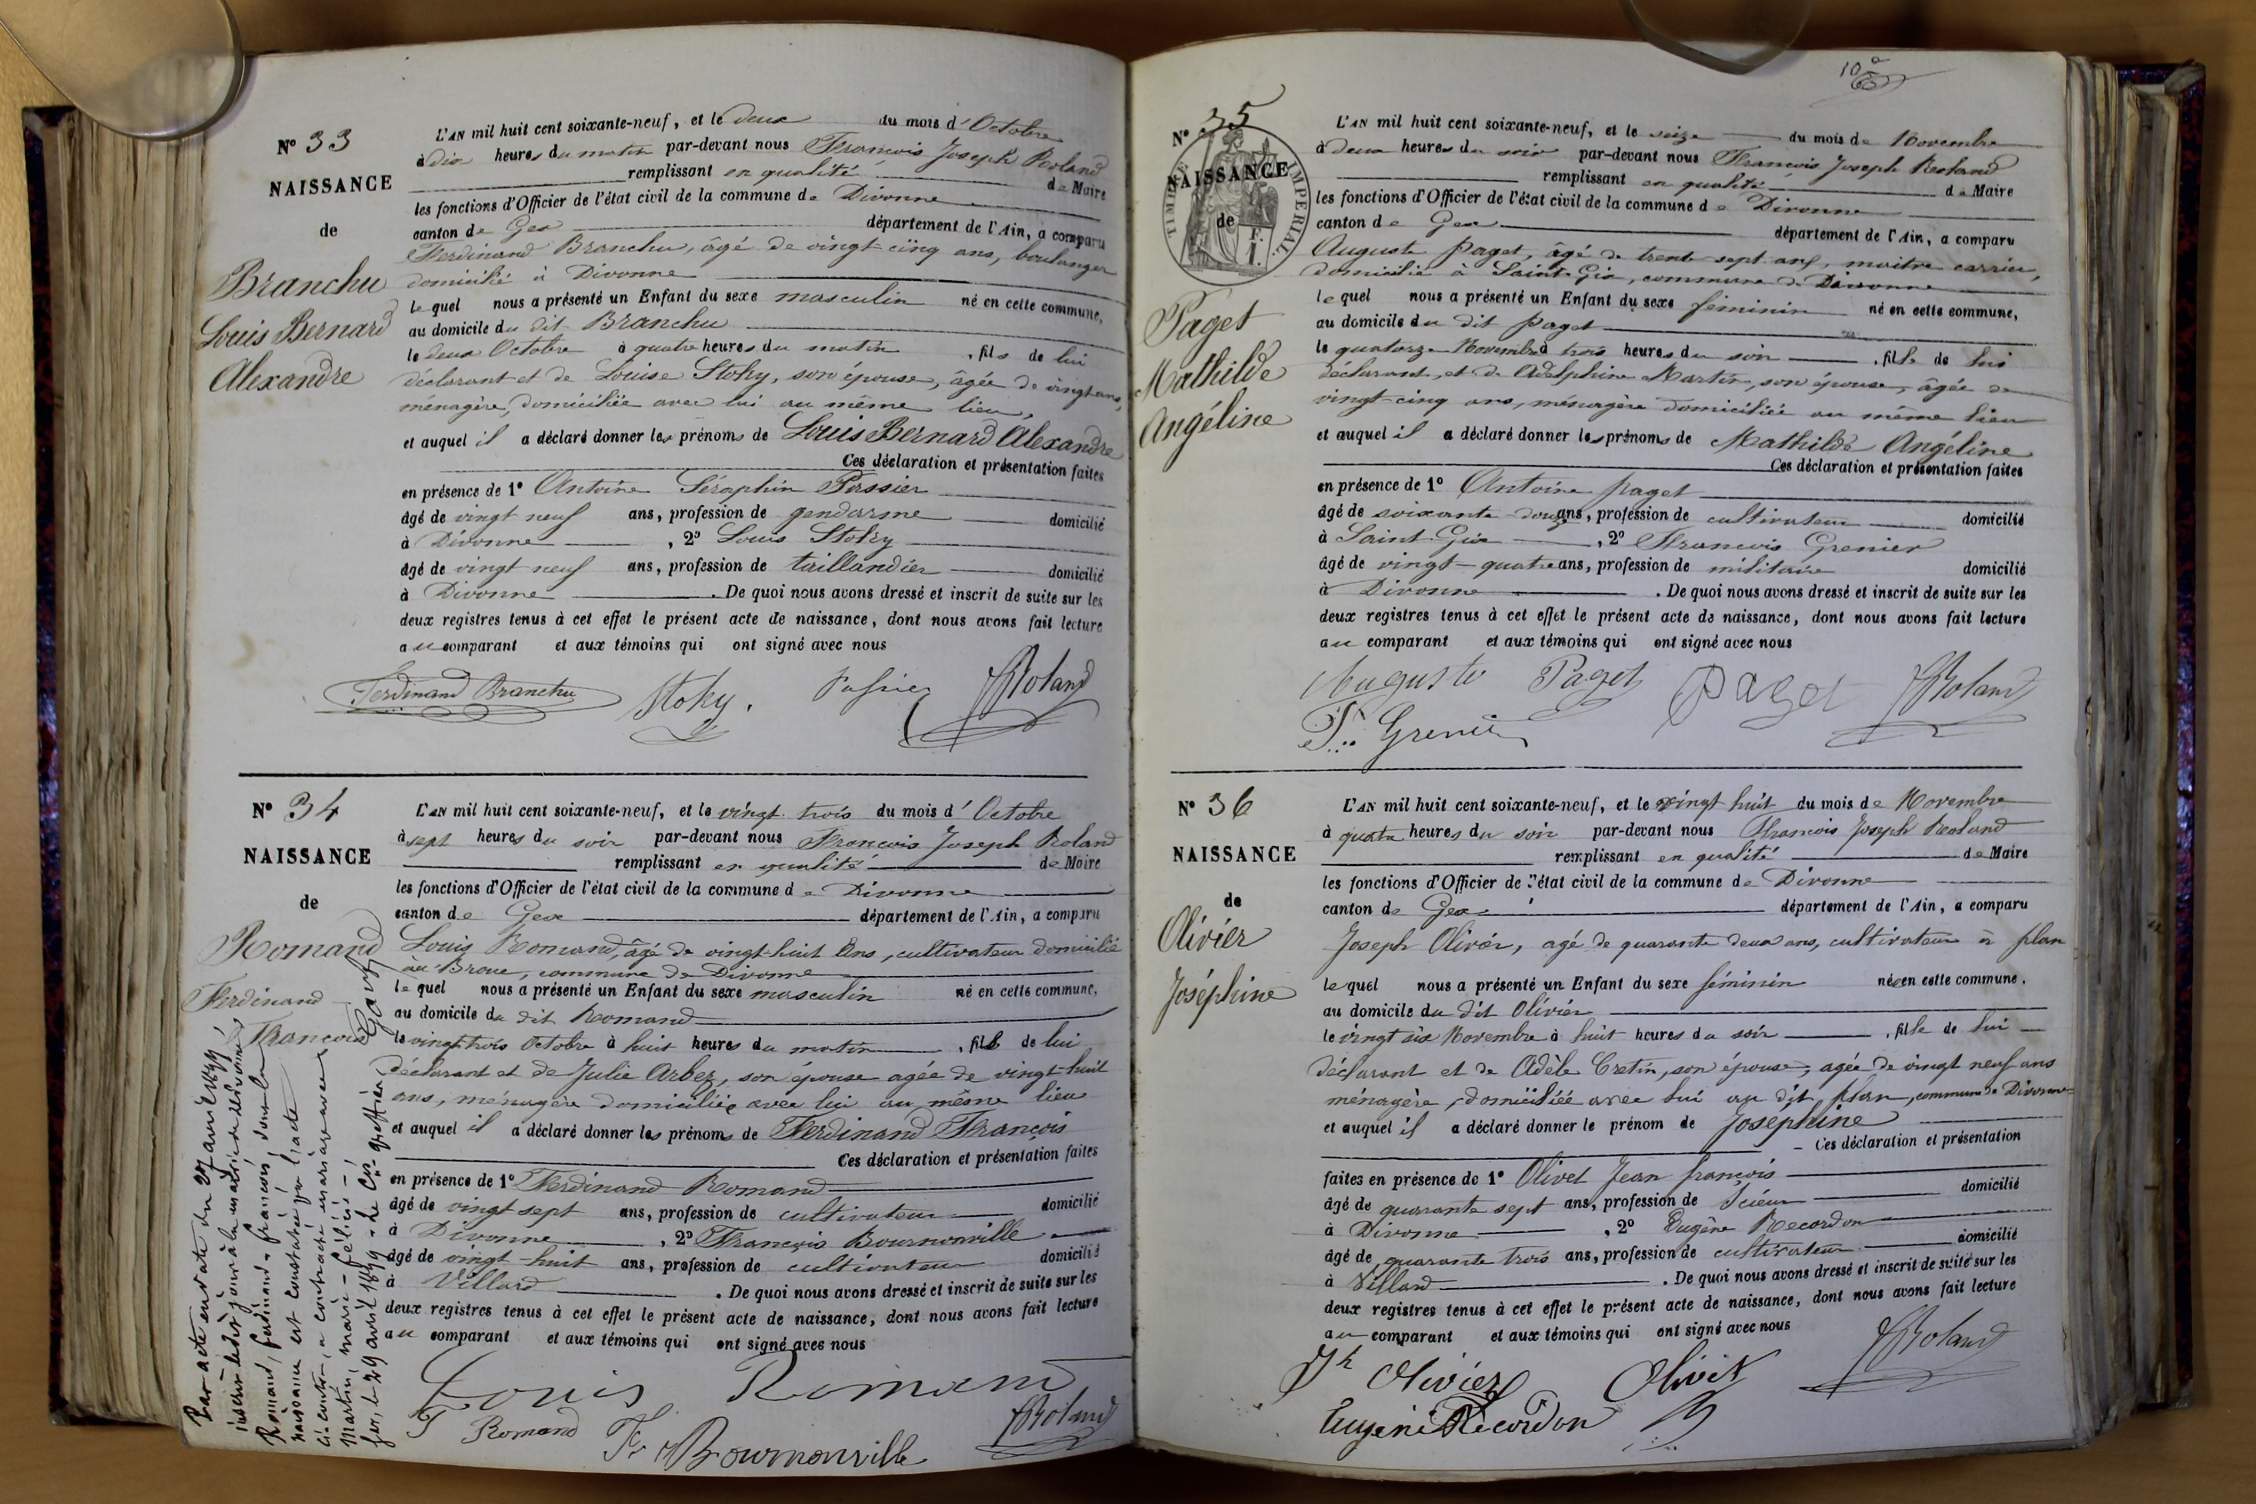 N° 33
NAISSANCE
de
Branchu
Louis Bernard
Alexandre
L'AN mil huit cent soixante-neuf, et le deux du mois d'Octobre
à dix heures du matin par-devant nous François Joseph Roland
remplissant en qualité de Maire
les fonctions d'Officier de l'état civil de la commune de Divonne
canton de Gex département de l'Ain, a comparu
Ferdinand Branchu, âgé de vingt-cinq ans, boulanger
domicilié à Divonne
lequel nous a présenté un Enfant du sexe masculin né en cette commune,
au domicile du dit Branchu
le deux Octobre à quatre heures du matin, fils de lui
déclarant et de Louise Stoky, son épouse, âgée de vingt ans,
ménagère, domiciliée avec lui au même lieu,
et auquel il a déclaré donner les prénoms de Louis Bernard Alexandre
Ces déclaration et présentation faites
en présence de 1° Antoine Séraphin
âgé de vingt neuf ans, profession de gendarme domicilié
à Divonne, 2° Louis Stoky
âgé de vingt neuf ans, profession de taillandier domicilié
à Divonne. De quoi nous avons dressé et inscrit de suite sur les
deux registres tenus à cet effet le présent acte de naissance, dont nous avons fait lecture
au comparant et aux témoins qui ont signé avec nous
Ferdinand Branchu Stoky. Roland
N° 34
NAISSANCE
de
Romand
Ferdinand
François
L'AN mil huit cent soixante-neuf, et le vingt trois du mois d'Octobre
à sept heures du soir par-devant nous François Joseph Roland
remplissant en qualité de Maire
les fonctions d'Officier de l'état civil de la commune de Divonne
canton de Gex département de l'Ain, a comparu
Louis Romand, âgé de vingt-huit ans, cultivateur domicilié
au Broue, commune de Divonne
lequel nous a présenté un Enfant du sexe masculin né en cette commune,
au domicile du dit Romand
le vingt trois Octobre à huit heures du matin, fils de lui
déclarant et de Julie Arbez, son épouse agée de vingt-huit
ans, ménagère domiciliée avec lui au même lieu
et auquel il a déclaré donner les prénoms de Ferdinand François
Ces déclaration et présentation faites
en présence de 1° Ferdinand Romand
âgé de vingt sept ans, profession de cultivateur domicilié
à Divonne, 2° François Bournonville
âgé de vingt-huit ans, profession de cultivateur domicilié
à Villard. De quoi nous avons dressé et inscrit de suite sur les
deux registres tenus à cet effet le présent acte de naissance, dont nous avons fait lecture
au comparant et aux témoins qui ont signé avec nous
Louis Romand
F Romand Fr Bournonville Roland
Par acte en date du 27 avril 1899
inscrit ledit jour à la mairie de Divonne
Romand, ferdinand-françois, dont la
naissance est constatée par l'acte
ci-contre, a contracté mariage avec
Martin, marie-félicie-
Gex, le 29 avril 1899. Le Cis-greffier
10
N° 35
TIMBRE IMPERIAL
1 F.
NAISSANCE
de
Paget
Mathilde
Angéline
L'AN mil huit cent soixante-neuf, et le seize du mois de Novembre
à deux heures du soir par-devant nous François Joseph Roland
remplissant en qualité de Maire
les fonctions d'Officier de l'état civil de la commune de Divonne
canton de Gex département de l'Ain, a comparu
Auguste Paget, âgé de trente sept ans, maitre carrier,
domicilié à Saint-Gix, commune de Divonne
lequel nous a présenté un Enfant du sexe féminin né en cette commune,
au domicile du dit Paget
le quatorze Novembre à trois heures du soir, fille de lui
déclarant, et de Adelphine Martin, son épouse, âgée de
vingt-cinq ans, ménagère domiciliée au même lieu
et auquel il a déclaré donner les prénoms de Mathilde Angéline
Ces déclaration et présentation faites
en présence de 1° Antoine Paget
âgé de soixante douze ans, profession de cultivateur domicilié
à Saint Gix, 2° François Grenier
âgé de vingt-quatre ans, profession de militaire domicilié
à Divonne. De quoi nous avons dressé et inscrit de suite sur les
deux registres tenus à cet effet le présent acte de naissance, dont nous avons fait lecture
au comparant et aux témoins qui ont signé avec nous
Auguste Paget Paget Roland
F. Grenier
N° 36
NAISSANCE
de
Olivier
Joséphine
L'AN mil huit cent soixante-neuf, et le vingt huit du mois de Novembre
à quatre heures du soir par-devant nous François Joseph Roland
remplissant en qualité de Maire
les fonctions d'Officier de l'état civil de la commune de Divonne
canton de Gex département de l'Ain, a comparu
Joseph Olivier, agé de quarante deux ans, cultivateur à plan
lequel nous a présenté un Enfant du sexe féminin née en cette commune.
au domicile du dit Olivier
le vingt six Novembre à huit heures du soir, fille de lui
déclarant et de Adèle Cretin, son épouse, agée de vingt neuf ans
ménagère, domiciliée avec lui au dit plan, commune de Divonne
et auquel il a déclaré donner le prénom de Joséphine
Ces déclaration et présentation
faites en présence de 1° Olivet Jean françois
âgé de quarante sept ans, profession de Scieur domicilié
à Divonne, 2° Eugène Recordon
âgé de quarante trois ans, profession de cultivateur domicilié
à Villard. De quoi nous avons dressé et inscrit de suite sur les
deux registres tenus à cet effet le présent acte de naissance, dont nous avons fait lecture
au comparant et aux témoins qui ont signé avec nous
Jh Olivier Olivet Roland
Eugène Recordon